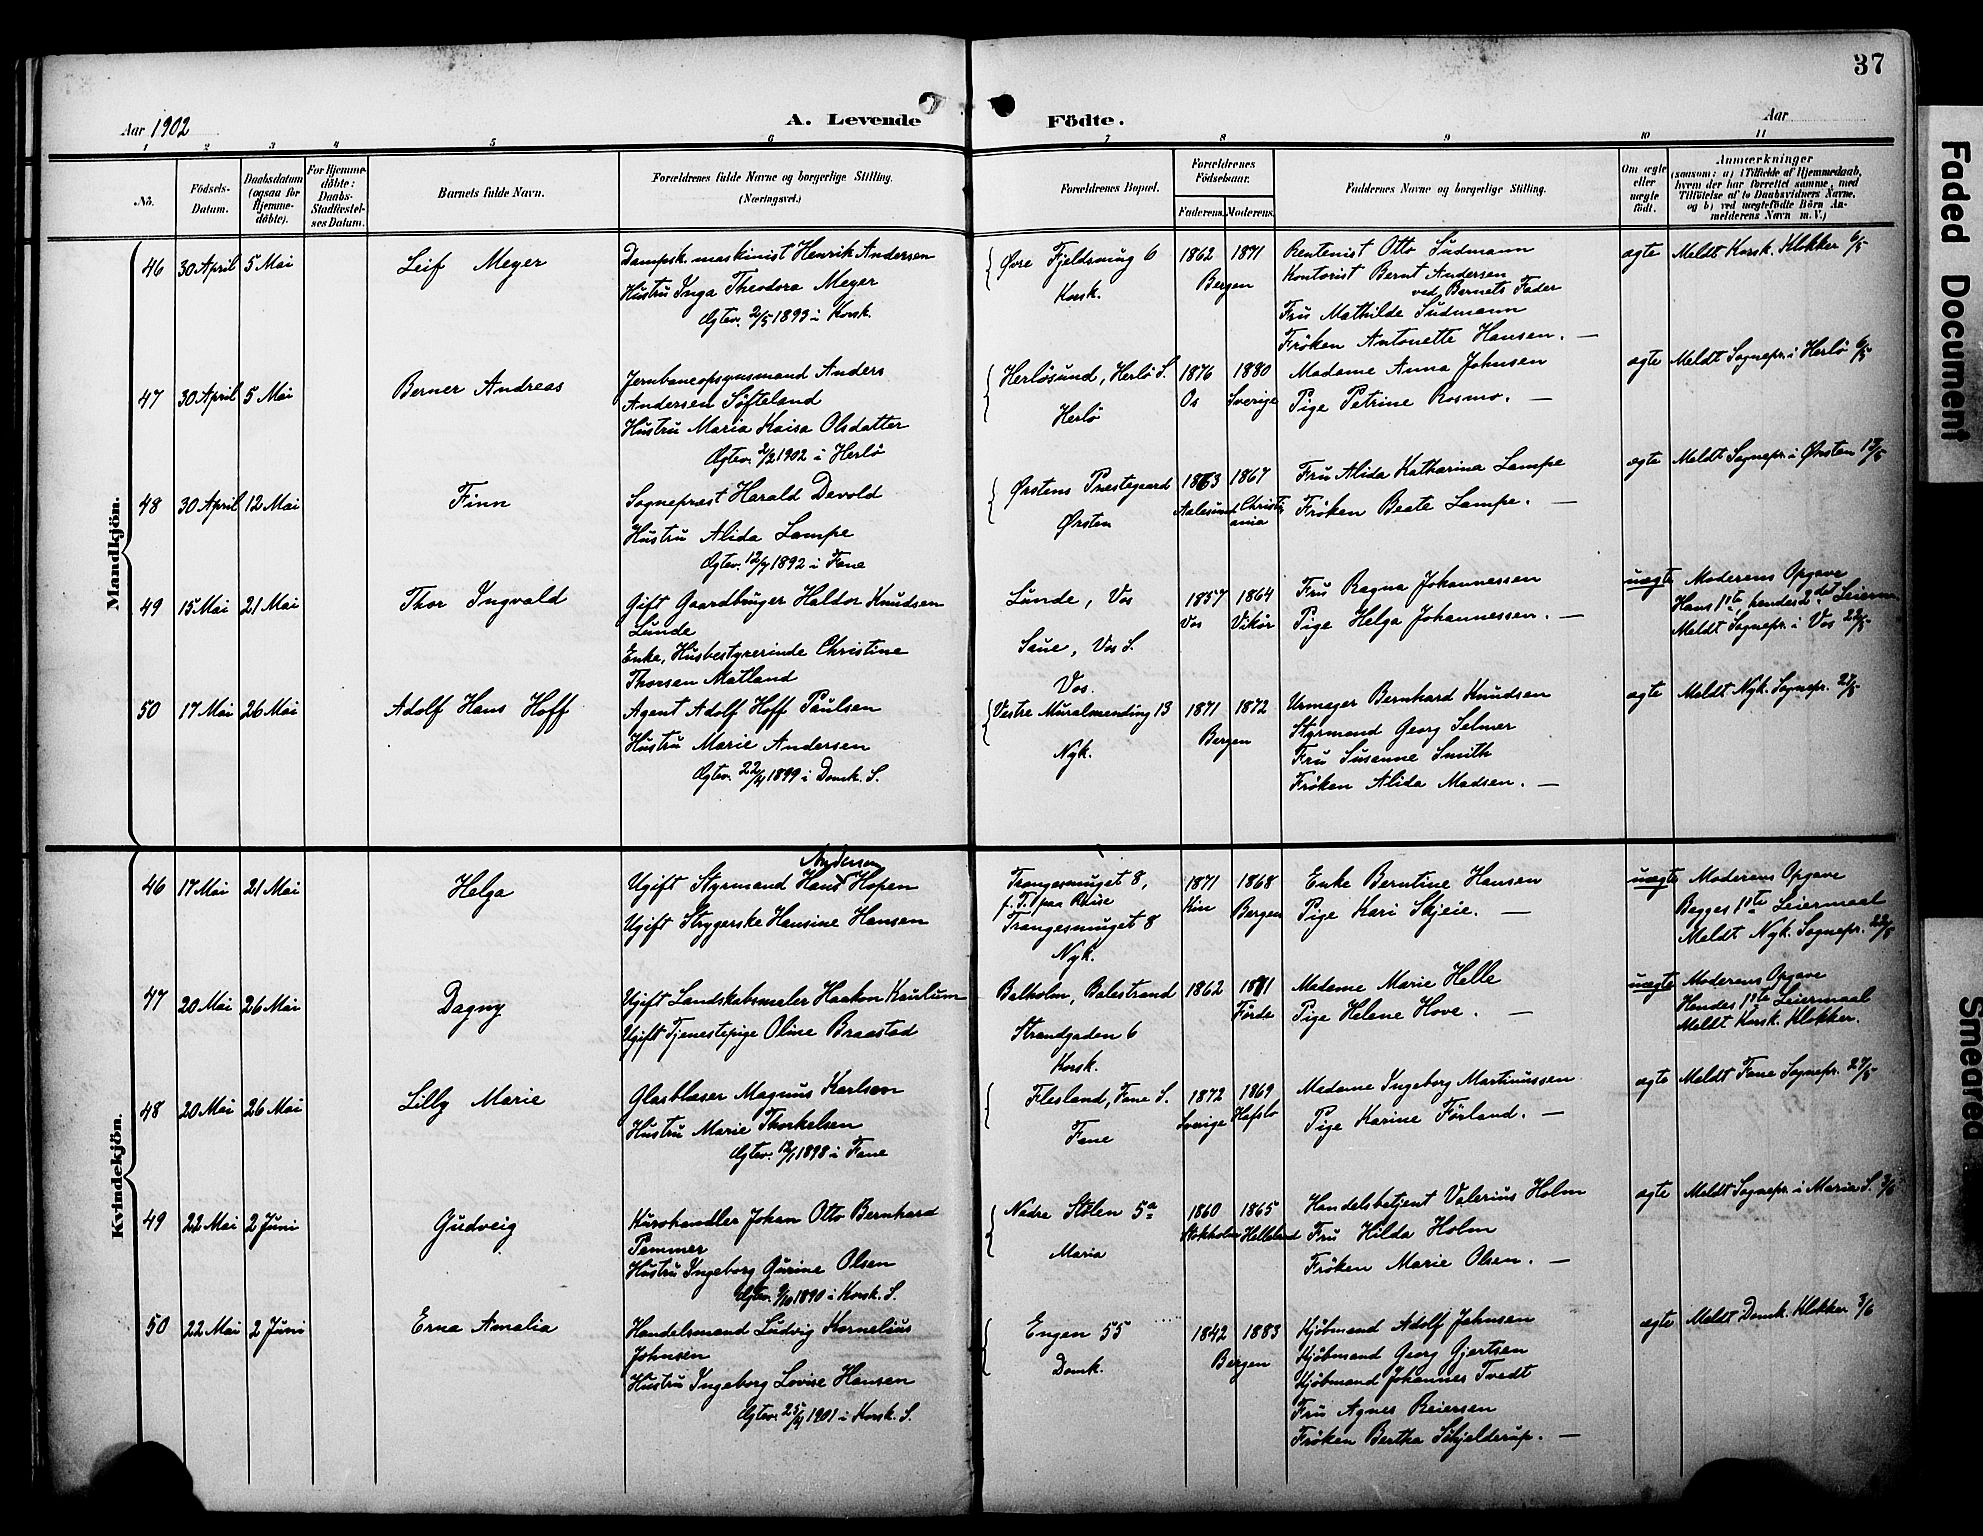 37
Aar 1902
A. Levende Födte.
Aar
1 2 3 4 5 6 7 8 9 10 11
No.
Födsels-Datum.
Daabsdatum (ogsaa for Hjemme-döbte).
For Hjemme-döbte: Daabs-Stadfæstel-ses Datum.
Barnets fulde Navn.
Forældrenes fulde Navne og borgerlige Stilling.
(Næringsvei.)
Forældrenes Bopæl.
Forældrenes Födselsaar.
Faderens. Moderens.
Faddernes Navne og borgerlige Stilling.
Om ægte eller uægte födt.
Anmærkninger
(saasom: a) i Tilfælde af Hjemmedaab, hvem der har forrettet samme, med Tilföielse af to Daabsvidners Navne, og b) ved uægtefödte Börn An-melderens Navn m.V.)
Mandkjön.
46 30 April 5 Mai Leif Meyer
Dampsk. maskinist Henrik Andersen
Hustru Inga Theodora Meyer
Ægtev. 2/5 1893 i Korsk.
Øvre Fjeldsmug 6
Korsk.
1862 1871
Bergen
Rentenist Otto Sudmann
Kontorist Bernt Andersen
ved Barnets Fader
Fru Mathilde Sudmann
Frøken Antonette Hansen. —
ægte
Meldt Korsk. Klokker 6/5
47 30 April 5 Mai Berner Andreas
Jernbaneopsynsmand Anders
Andersen Søfteland
Hustru Maria Kaisa Olsdatter
Ægtev. 2/2 1902 i Herlø
Herløsund, Herlø S.
Herlø
1876 1880
Os Sverige
Madame Anna Johnsen
Pige Petrine Rosmo. —
ægte
Meldt Sognepr. i Herlø 6/5
48 30 April 12 Mai Finn
Sogneprest Harald Devold
Hustru Alida Lampe
Ægtev. 12/7 1892 i Fane
Ørstens Præstegaard
Ørsten
1863 1867
Aalesund Christiania
Fru Alida Katharina Lampe
Frøken Beate Lampe. —
ægte
Meldt Sognepr. i Ørsten 13/5
49 15 Mai 21 Mai Thor Ingvald
Gift Gaardbruger Haldor Knudsen
Lunde
Enke, Husbestyrerinde Christine
Thorsen Matland
Lunde, Vos
Saue, Vos S.
Vos.
1857 1864
Vos Vikør
Fru Ragna Johannessen
Pige Helga Johannessen. —
uægte
Moderens Opgave
Hans 1ste, hendes 2det Leierm.
Meldt Sognepr. i Vos 22/5
50 17 Mai 26 Mai Adolf Hans Hoff
Agent Adolf Hoff Paulsen
Hustru Marie Andersen
Ægtev. 22/4 1899 i Domk. S.
Vestre Muralmending 13
Nyk.
1871 1872
Bergen
Urmager Bernhard Knudsen
Styrmand Georg Selmer
Fru Susanne Smith
Frøken Alida Madsen. —
ægte
Meldt Nyk. Sognepr. 27/5
Kvindekjön.
46 17 Mai 21 Mai Helga
Andersen
Ugift Styrmand Hans Hopen
Ugift Strygerske Hansine Hansen
Trangesmuget 8,
f. T. paa Reise
Trangesmuget 8
Nyk.
1871 1868
Kin Bergen
Enke Berntine Hansen
Pige Kari Skjeie. —
uægte
Moderens Opgave
Begges 1ste Leiermaal
Meldt Nyk. Sognepr. 22/5
47 20 Mai 26 Mai Dagny
Ugift Landskabsmaler Haakon Kaurlum
Ugift Tjenestepige Oline Braastad
Balholm, Balestrand
Strandgaden 6
Korsk.
1862 1881
Førde
Madame Marie Helle
Pige Helene Hove. —
uægte
Moderens Opgave
Hendes 1ste Leiermaal
Meldt Korsk. Klokker.
48 20 Mai 26 Mai Lilly Marie
Glasblæser Magnus Karlson
Hustru Marie Thorkelsen
Ægtev. 12/1 1898 i Fane
Flesland, Fane S.
Fane
1872 1869
Sverige Hafslo
Madame Ingeborg Martinussen
Pige Karine Førland. —
ægte
Meldt Fane Sognepr. 27/5
49 22 Mai 2 Juni Gudveig
Kurvhandler Johan Otto Bernhard
Pemmer
Hustru Ingeborg Gurine Olsen
Ægtev. 9/10 1890 i Korsk. S.
Nedre Stølen 5a
Maria
1860 1865
Stokholm Helleland
Handelsbetjent Valerius Holm
Fru Hilda Holm
Frøken Marie Olsen. —
ægte
Meldt Sognepr. i Maria S. 3/6
50 22 Mai 2 Juni Erna Amalia
Handelsmand Ludvig Kornelius
Johnsen
Hustru Ingeborg Lovise Hansen
Ægtev. 25/4 1901 i Korsk. S.
Engen 55
Domk.
1842 1883
Bergen
Kjøbmand Adolf Johnsen
Kjøbmand Georg Gjertsen
Kjøbmand Johannes Tvedt
Fru Agnes Reiersen
Frøken Bertha Schjelderup. —
ægte
Meldt Domk. Klokker 3/6
Faded Document
Smeared